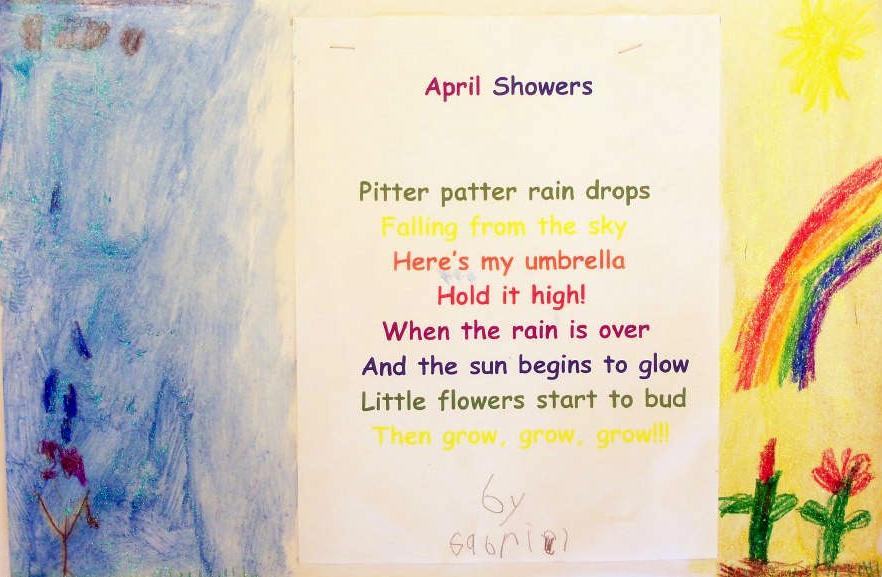 April Showers
Pitter patter rain drops
Falling from the sky
Here's my umbrella
Hold it high!
When the rain is over
And the sun begins to glow
Little flowers start to bud
Then grow, grow, grow!!!
by